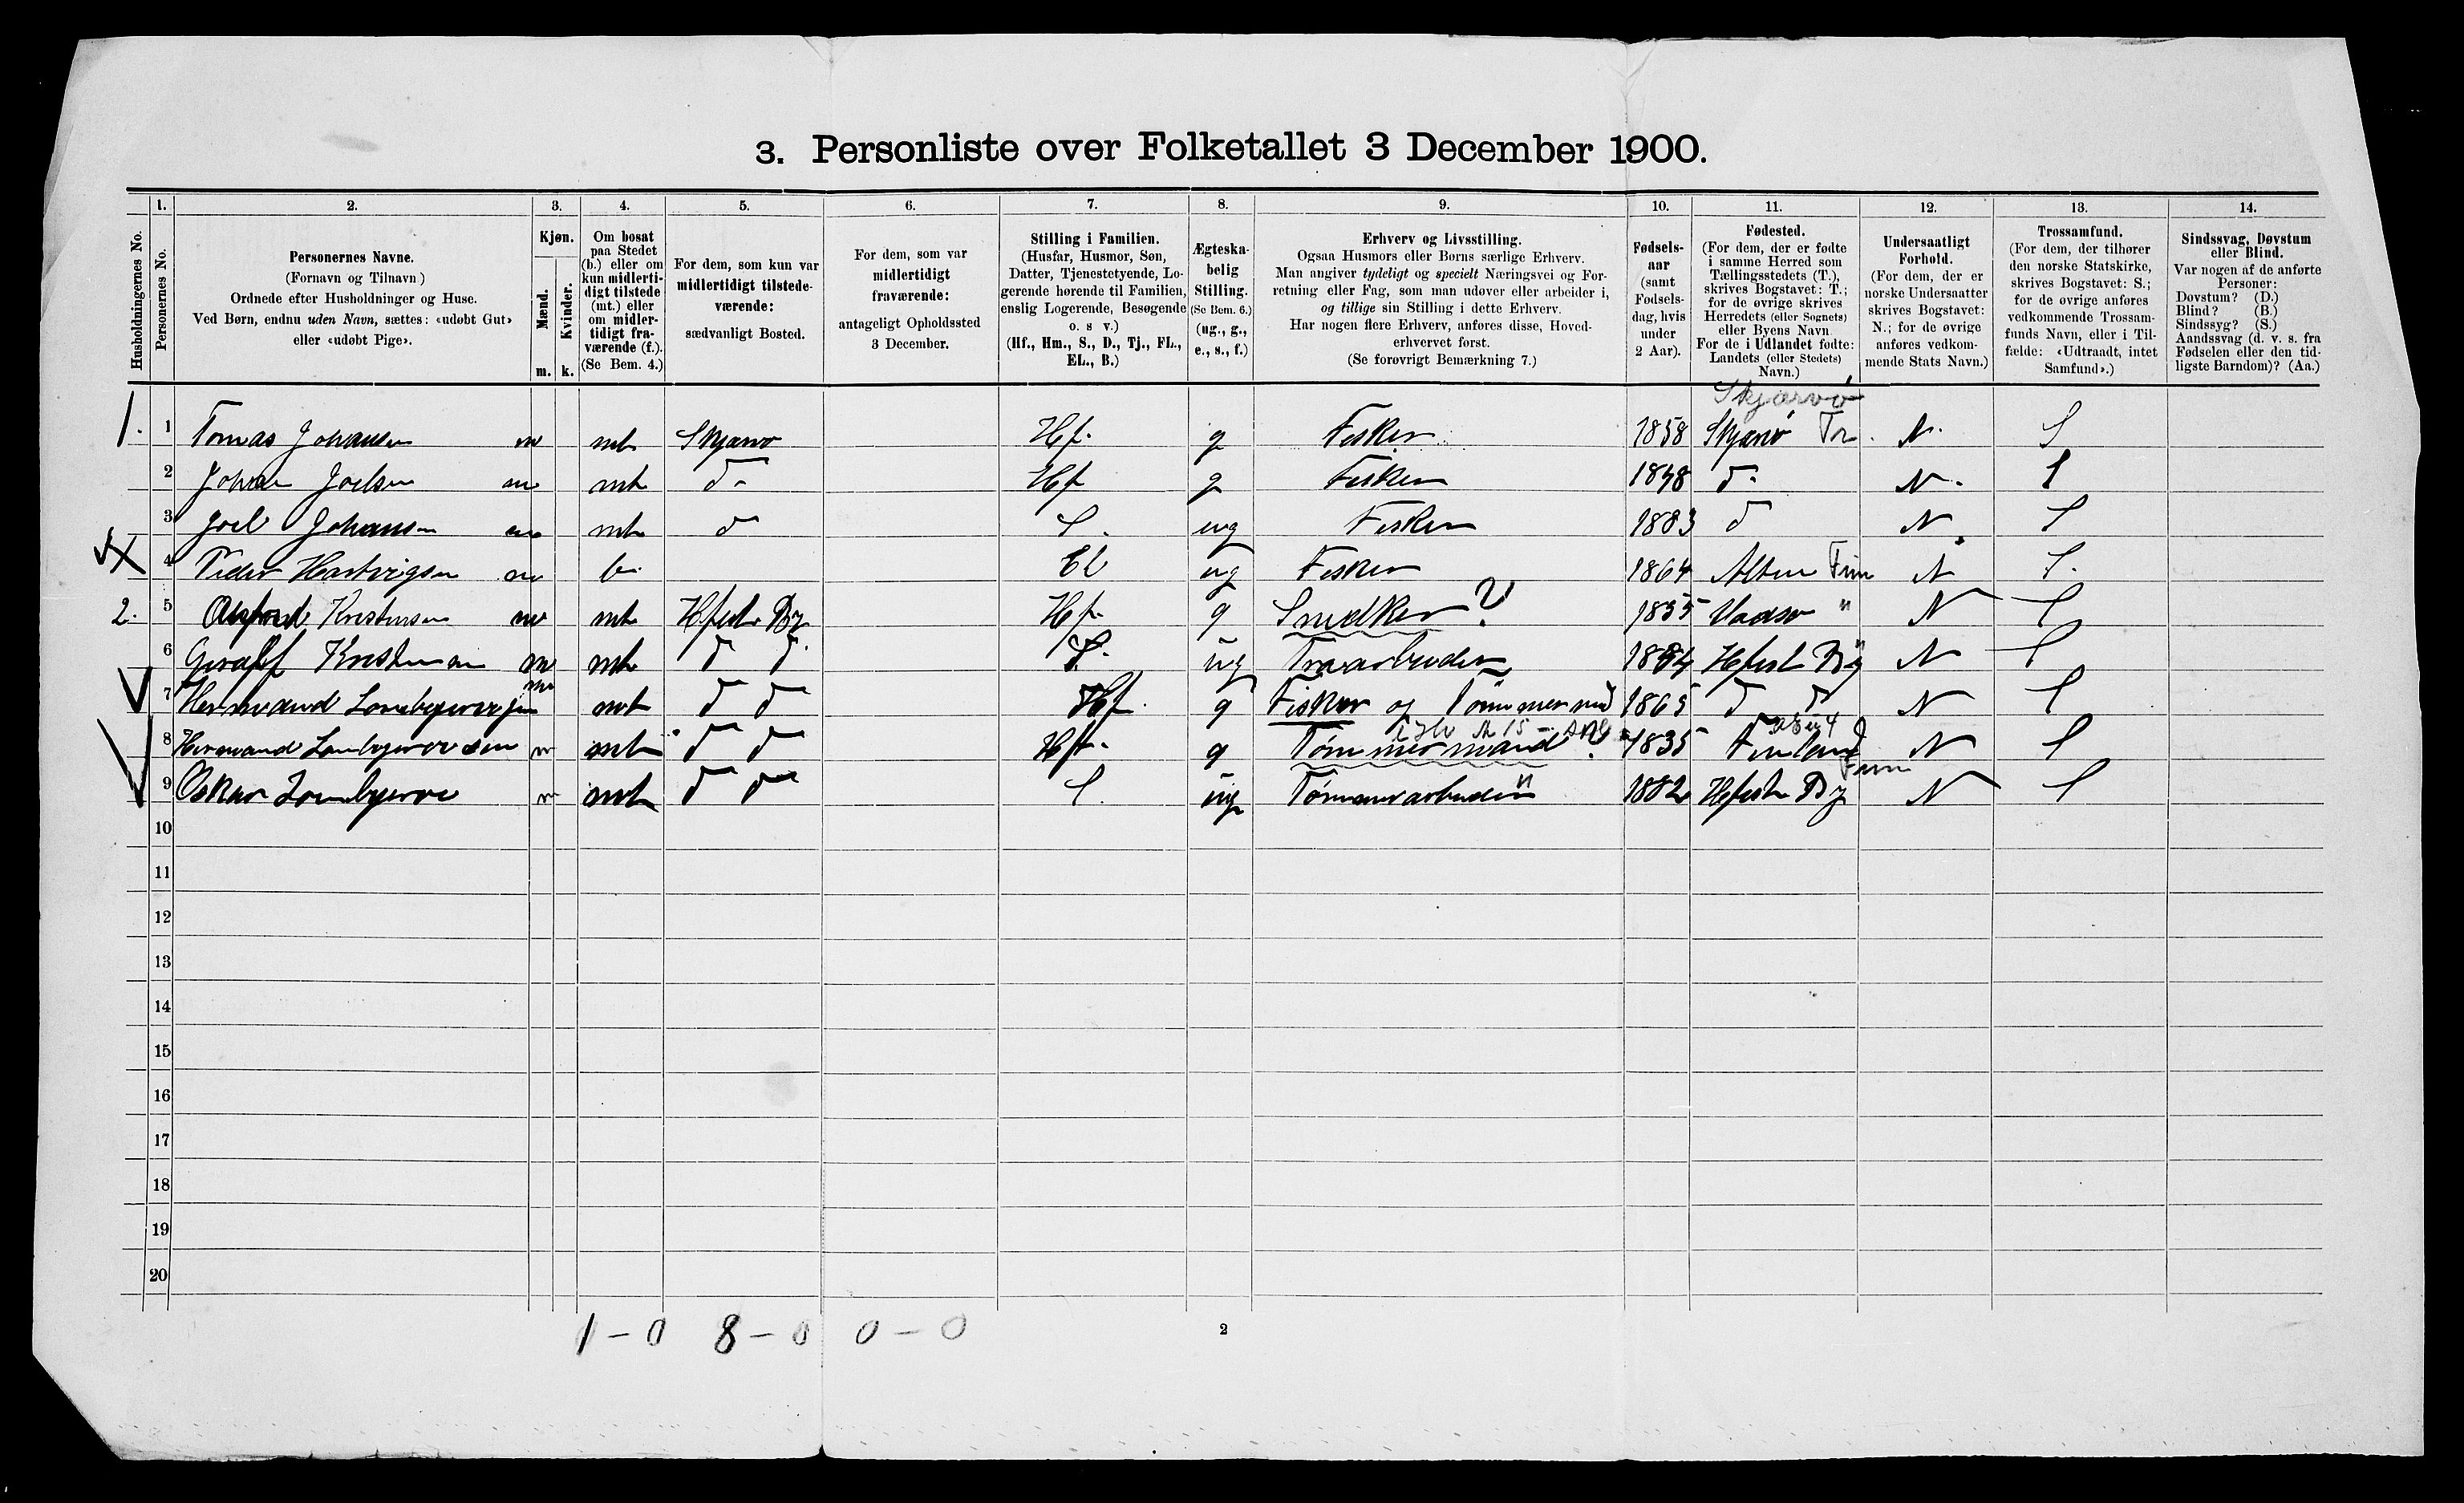 3. Personliste over Folketallet 3 December 1900.
1. 2. 3. 4. 5. 6. 7. 8. 9. 10. 11. 12. 13. 14.
Husholdningernes No.
Personernes No.
Personernes Navne.
(Fornavn og Tilnavn)
Ordnede efter Husholdninger og Huse.
Ved Børn, endnu uden Navn, sættes: «udøbt Gut»
eller «udøbt Pige».
Kjøn.
Mænd.
Kvinder.
m. k.
Om bosat
paa Stedet
(b.) eller om
kun midlerti-
digt tilstede
(mt.) eller
om midler-
tidigt fra-
værende (f.).
(Se Bem. 4.)
For dem, som kun var
midlertidigt tilstede-
værende:
sædvanligt Bosted.
For dem, som var
midlertidigt
fraværende:
antageligt Opholdssted
3 December.
Stilling i Familien.
(Husfar, Husmor, Søn,
Datter, Tjenestetyende, Lo-
gerende hørende til Familien,
enslig Logerende, Besøgende
o. s v.)
(Hf., Hm., S., D., Tj., FL.,
EL., B.)
Ægteska-
belig
Stilling.
(Se Bem. 6.)
(ug., g.,
e., s., f.)
Erhverv og Livsstilling.
Ogsaa Husmors eller Børns særlige Erhverv.
Man angiver tydeligt og specielt Næringsvei og For-
retning eller Fag, som man udøver eller arbeider i,
og tillige sin Stilling i dette Erhverv.
Har nogen flere Erhverv, anføres disse, Hoved-
erhvervet først.
(Se forøvrigt Bemærkning 7.)
Fødsels-
aar
(samt
Fødsels-
dag, hvis
under
2 Aar).
Fødested.
(For dem, der er fødte
i samme Herred som
Tællingsstedets (T.),
skrives Bogstavet: T.;
for de øvrige skrives
Herredets (eller Sognets)
eller Byens Navn.
For de i Udlandet fødte:
Landets (eller Stedets)
Navn.)
Undersaatligt
Forhold.
(For dem, der er
norske Undersaatter
skrives Bogstavet:
N.; for de øvrige
anføres vedkom-
mende Stats Navn.)
Trossamfund.
(For dem, der tilhører
den norske Statskirke,
skrives Bogstavet: S.;
for de øvrige anføres
vedkommende Trossam-
funds Navn, eller i Til-
fælde: «Udtraadt, intet
Samfund».)
Sindssvag, Døvstum
eller Blind.
Var nogen af de anførte
Personer:
Døvstum? (D.)
Blind? (B.)
Sindssyg? (S.)
Aandssvag (d. v. s. fra
Fødselen eller den tid-
ligste Barndom)? (Aa.)
Skjærvø
1. 1 Tomas Johansen m mt Skjærvø Hf. g Fisker 1858 Skjærvø Tr. N. S
2 Johan Joelsen m mt do Hf g Fisker 18 8 do N. S
3 Joel Johansen m mt do S. ug Fisker 1883 do N S
4 Peder Hartvigsen m b. El ug Fisker 1864 Alten Fin N S.
2. 5 Kristensen m mt Hfest By Hf. g Snedker ? 1855 Vadsø " N S
6 Kristensen m mt do do S. ug Træarbeider 1884 Hfest By N S
7 m mt do do Hf. g Fisker og Tømmermd 1865 do do N S
8 m mt do do Hf. g Tømmermand 1835 Finland N S
Finm
9 Oskar m mt do do S. ug Tømmerarbeider " 1882 Hfest By N S
10
11
12
13
14
15
16
17
18
19
20
1-0 8-0 0-0
2